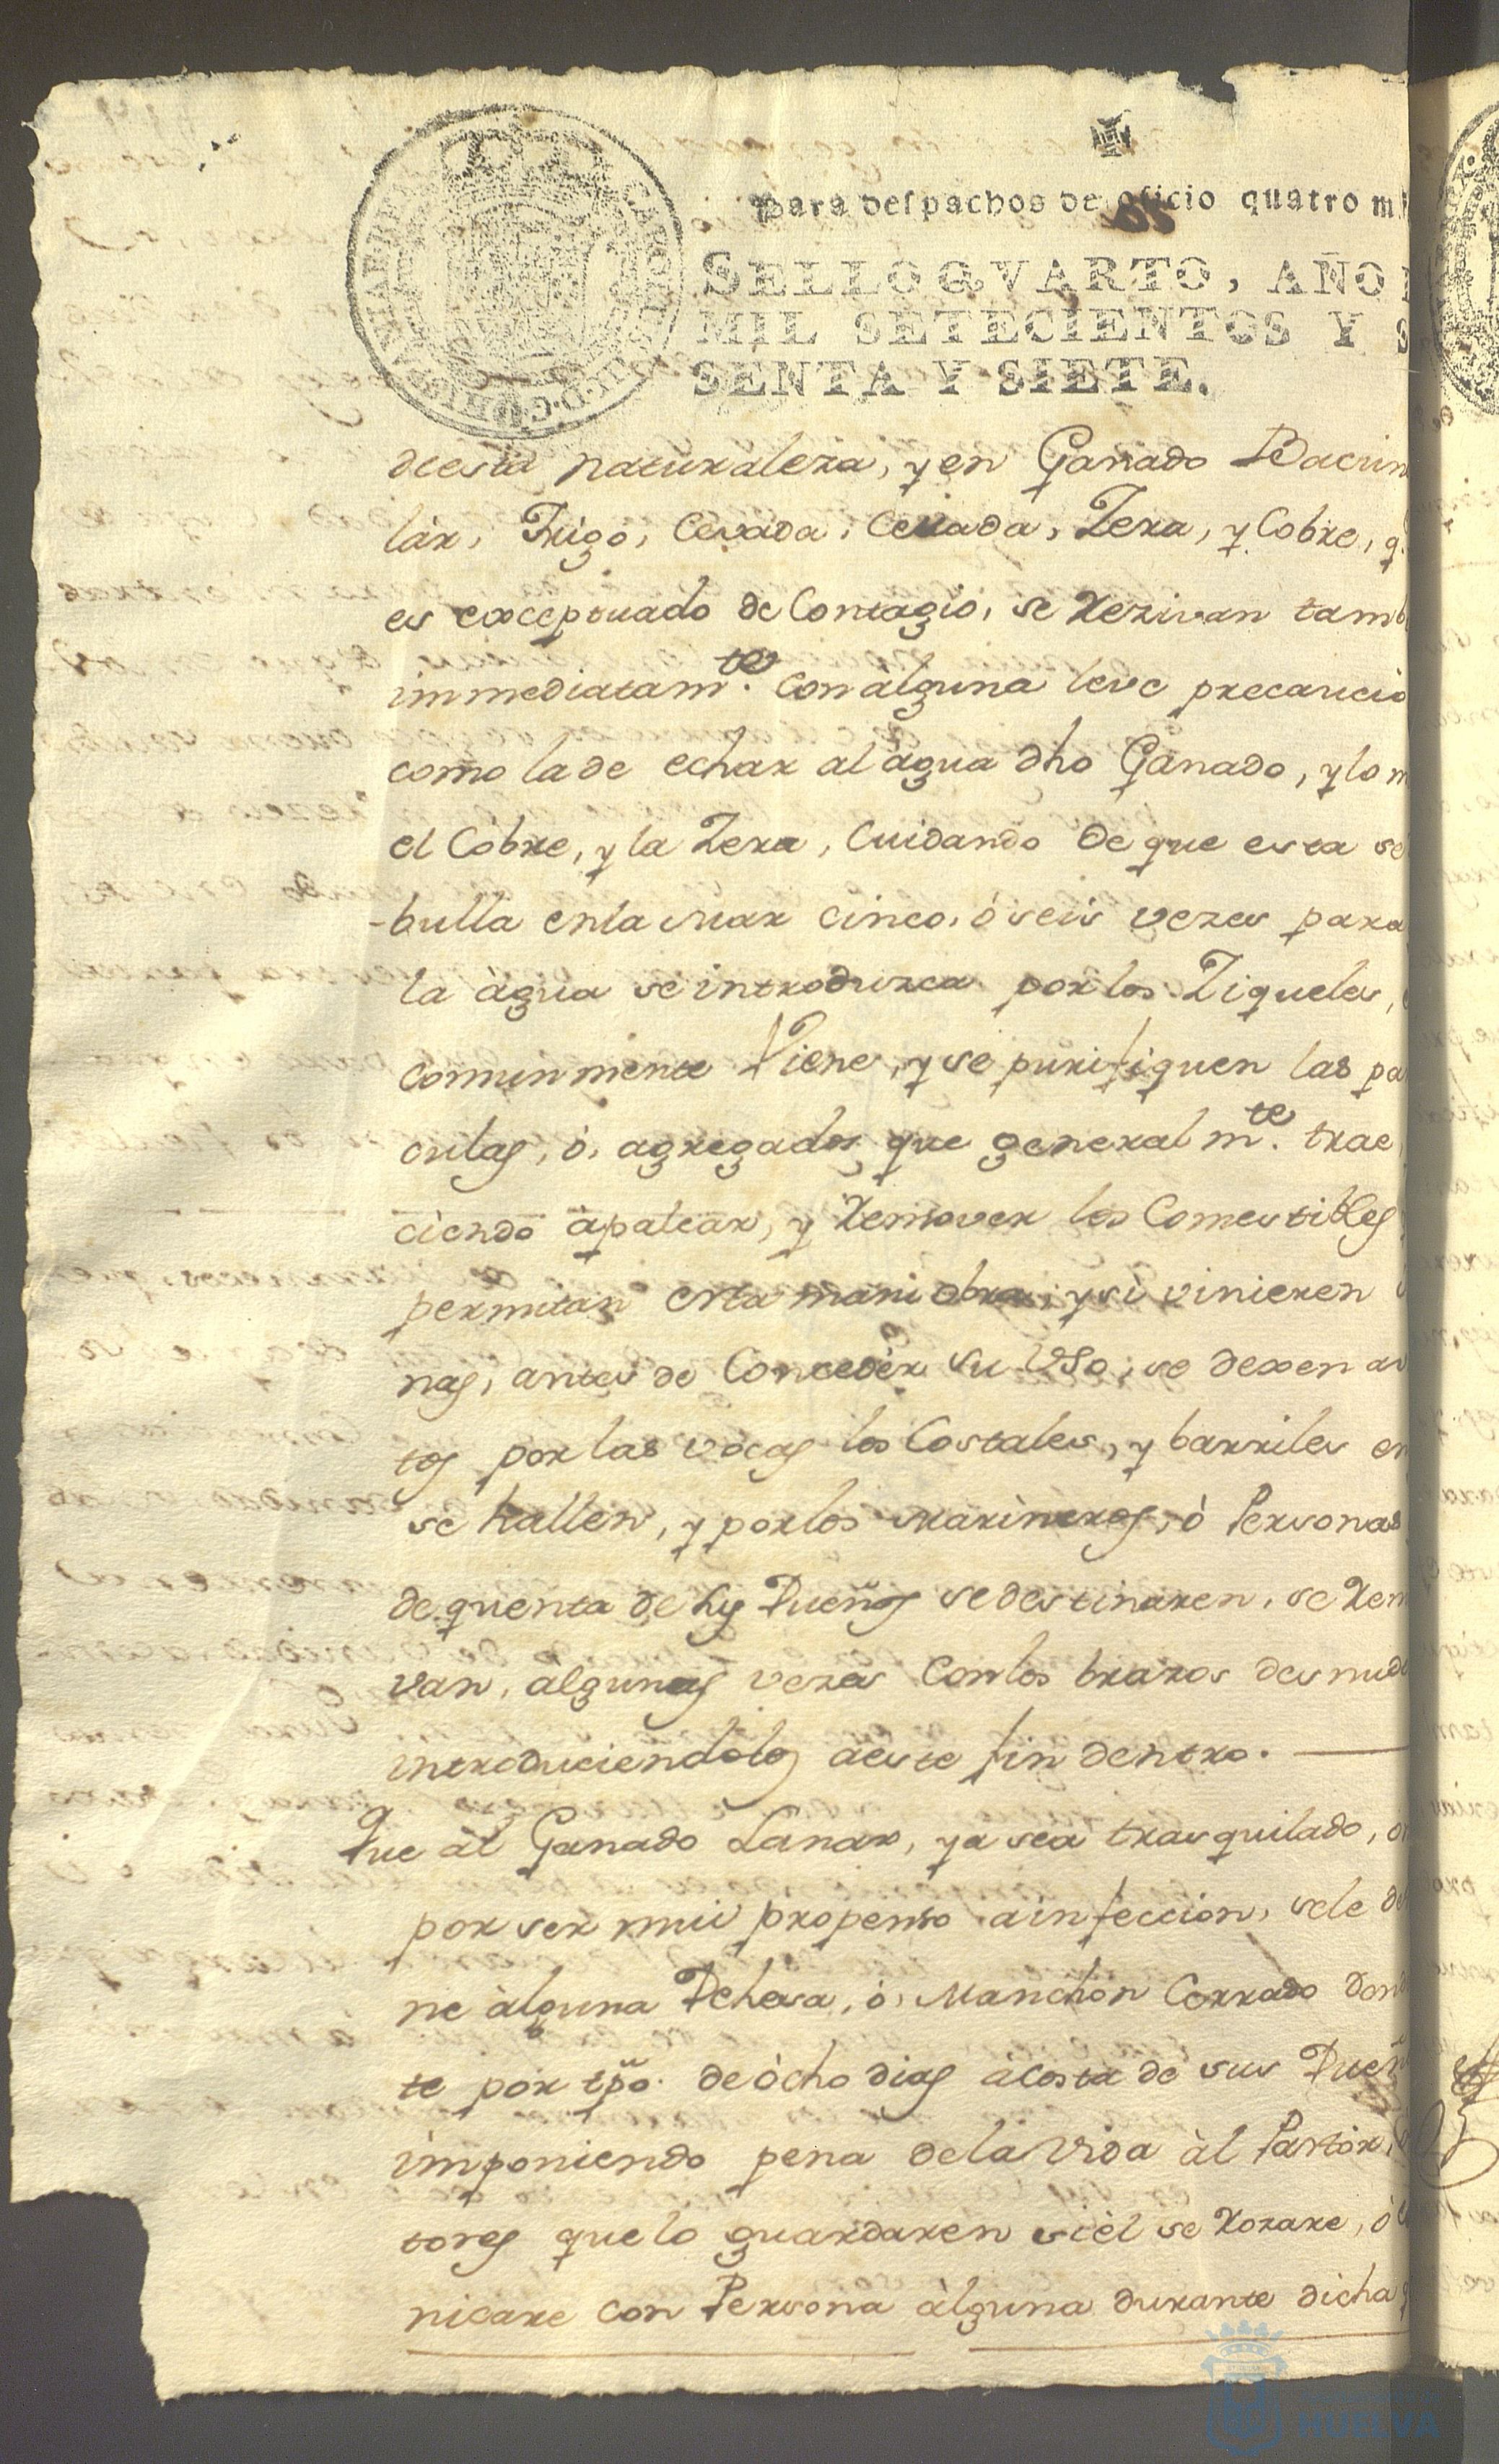 Para despachos de oficio quatro m
SELLO QVARTO, AÑO
MIL SETECIENTOS Y S
SENTA Y SIETE.
desta naturaleza, y en Ganado Bacun
lár, Trigo, Cevada, Cevada, Zera, y Cobre, q.
es exceptuado de Contagio, se rezivan tamb
immediatam.te con álguna leve precaució
como la de echar al água dho Ganado, y lo m
el Cobre, y la Zera, Cuidando de que esta se
bulla en la Mar cinco, ó seis vezes para
la água se introduzca por los Ziqueles,
comunmente Viene, y se purifiquen las pa
culas, ó, agregados que general m.te trae
ciendo ápalear, y remover los Comestibles
permitan esta maniobra, y si vinieren
nas, antes de Concedér su Uso, se dexen a
tos por las vocas los Costales, y barriles en
se hallen, y por los Marineros, ó Personas
de quenta de los Dueños se destinaren, se rem
van, álgunas vezes Con los brazos desnud
introduciendolos á este fin dentro.
Que al Ganado Lanar, ya sea trasquilado, o
por ser mui propenso a infeccion, se le d
ne álguna Dehesa, ó, Manchon Cerrado don
te por tpõ. de ócho dias á costa de sus Dueñ
imponiendo pena de la Vida ál Pastor,
tores que lo guardaren si él se rozare, ó
nicare con Persona álguna durante dicha
HUELVA